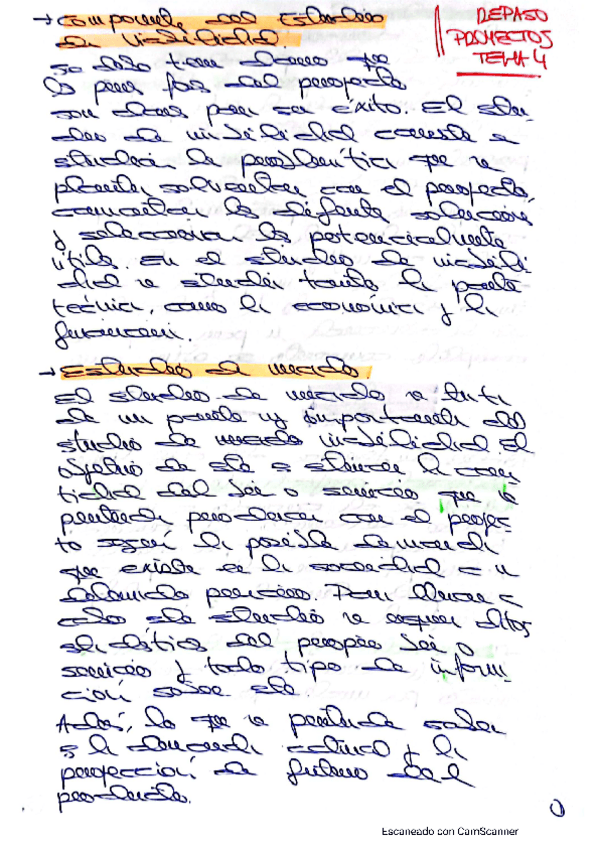 REPASO
PROYECTOS
TEMA 4
→ Componentes del Estudio
de viabilidad.
que
las fases del proyecto
son claves para su éxito. El estu-
dio de viabilidad consiste en
estudiar la problemática que se
plantea solventar con el proyecto,
las soluciones
y seleccionar las potencialmente
útiles. En el estudio de viabili-
dad se estudia tanto la parte
técnica, como la económica y la
financiera.
→ Estudio de mercado.
El estudio de mercado se trata
de un importante del
estudio de viabilidad. El
objetivo de este es la can-
tidad del bien o servicio que se
pretende producir con el proyec-
to según la posible demanda
que existe en la sociedad a un
determinado precio. Para llevar a
cabo este estudio se datos
estadísticos del propio bien o
servicio y todo tipo de informa-
ción sobre este.
Además, lo que se pretende saber
es la demanda actual y la
proyección de futuro del
producto.
Escaneado con CamScanner